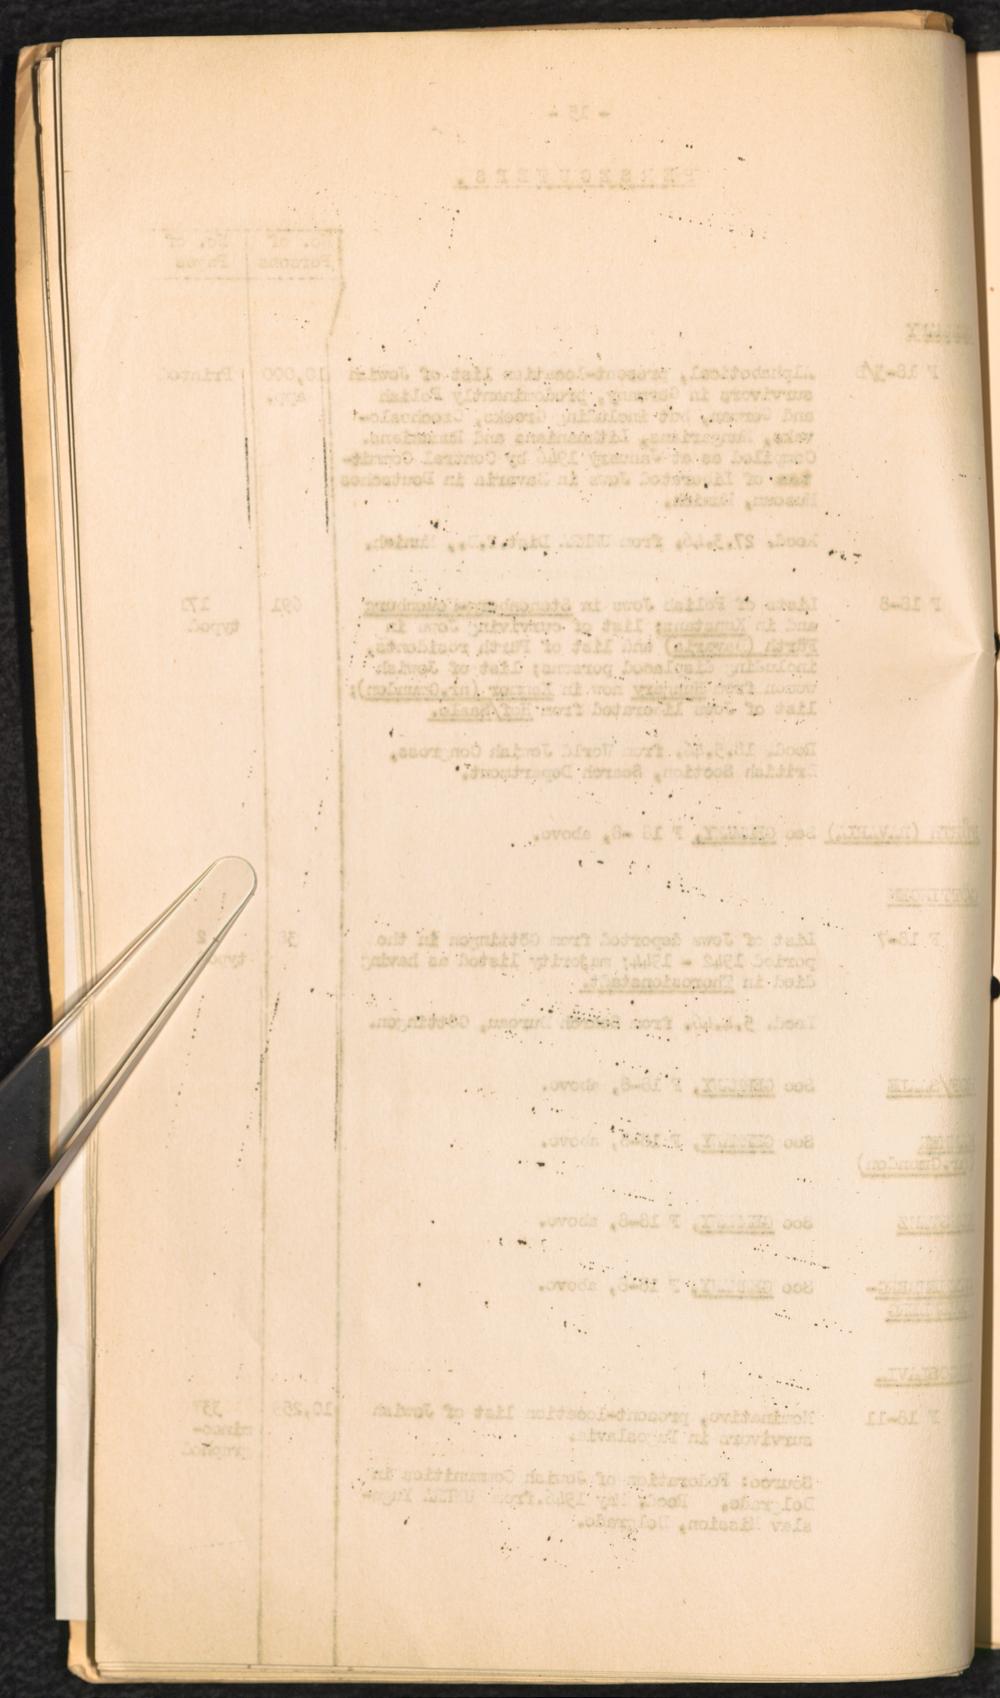 - 15 -
PERSECUTEES.
No. of Persons
No. of Pages
GERMANY
F 18-
Alphabetical, present-location list of Jewish
survivors in Germany, predominantly Polish
and German, but including Greeks, Czechoslo-
vaks, Hungarians, Lithuanians and Rumanians.
Compiled as at January 1946 by Central Commit-
tee of Liberated Jews in Bavaria in Deutsches
Museum, Munich.
10,000 app.
Printed
Recd. 27.3.46. from UNRRA Dist. Munich.
F 18-8
Lists of Polish Jews in
and in Konstanz; list of surviving Jews in
Fürth (Bavaria) and list of Fürth residents,
including displaced persons; list of Jewish
women from Hungary now in (nr.Gmunden);
list of Jews liberated from Hof/Saale.
691
171 typed.
Recd. 18.9.46. from World Jewish Congress,
British Section, Search Department.
FÜRTH (BAVARIA) See GERMANY, F 18-8, above.
GÖTTINGEN
F 18-7
List of Jews deported from Göttingen in the
period 1942 - 1944; majority listed as having
died in Theresienstadt.
2
Recd. 5.4.46. from Search Bureau, Göttingen.
HOF/SAALE See GERMANY, F 18-8, above.
(nr.Gmunden) See GERMANY, F 18-8, above.
KONSTANZ See GERMANY, F 18-8, above.
See GERMANY, F 18-8, above.
F 18-11
Nominative, present-location list of Jewish
survivors in Yugoslavia.
mimeo-
graphed
Source: Federation of Jewish Communities in
Belgrade. Recd. May 1946. from UNRRA Yugo-
slav Mission, Belgrade.